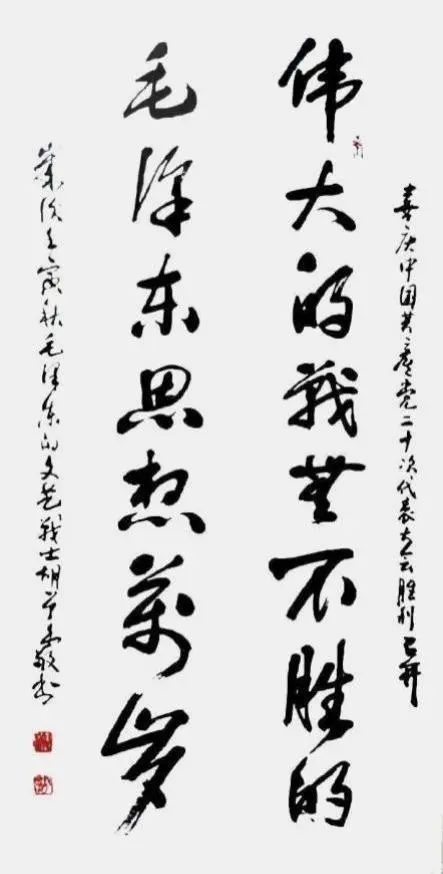 喜庆中国共产党二十次代表大会胜利召开
伟大的戰無不胜的
毛泽东思想萬岁
歲次壬寅秋毛泽东的文艺战士胡敬书